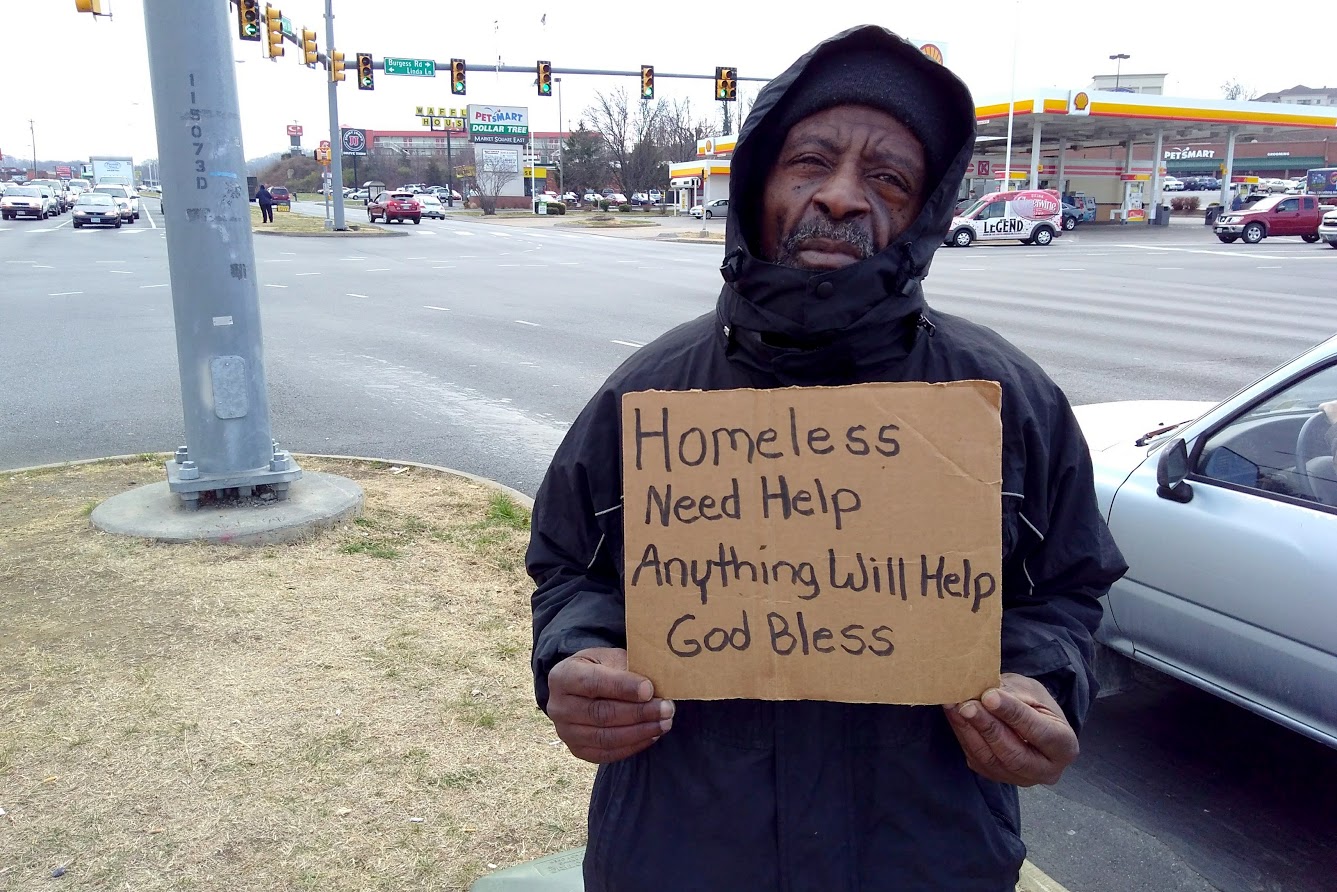 Burgess Rd
Linda Ln
WAFFLE
HOUSE
PETSMART
DOLLAR TREE
MARKET SQUARE EAST
115073D
PETSMART
LEGEND
Homeless
Need Help
Anything Will Help
God Bless